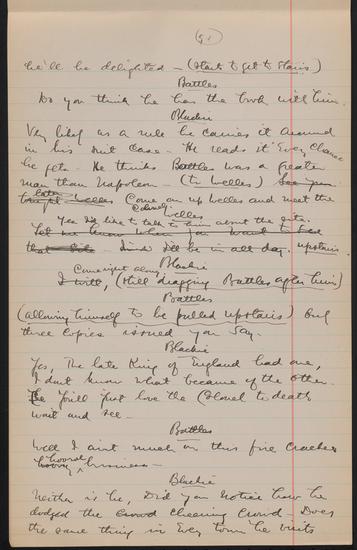 (9)
he'll be delighted - (starts to get to stairs)
Battles
Do you think he has the book with him
Blackie
Very likely as a rule he carries it around
in his suit case. He reads it Every chance
he gets. He thinks Battles was a greater
man than Napoleon - (to Welles) See you
later Welles Come on up Welles and meet the
Colonel,
Welles
Yes I'd like to talk to him about the
Let me know when you want to see
that I'll be in all day. upstairs.
Blackie
Come right along
I will, (still dragging Battles after him)
Battles
(allowing himself to be pulled upstairs) Only
three copies issued you say.
Blackie
Yes, The late King of England had one,
I dont know what became of the other.
You'll just love the Colonel to death
wait and see -
Battles
Well I aint much on this fire cracker
hooray business -
Blackie
Neither is he, Did you notice how he
dodged the crowd cheering crowd - Does
the same thing in Evey town he visits